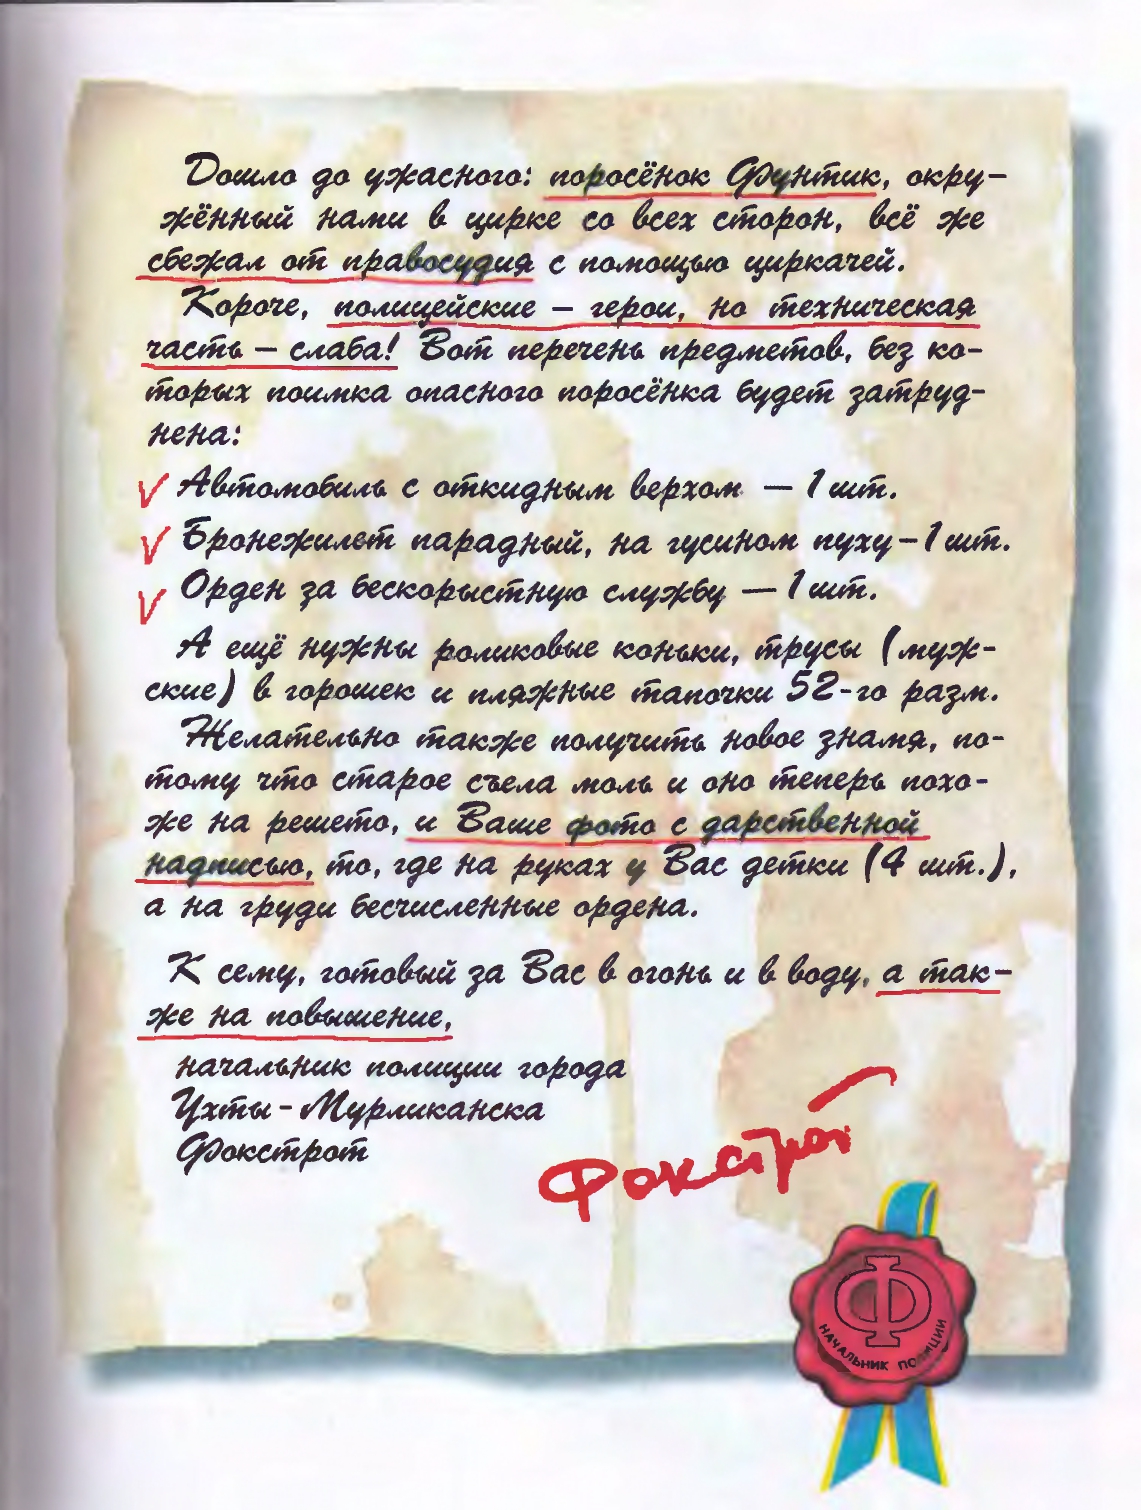 Дошло до ужасного: поросёнок Фунтик, окру-
жённый нами в цирке со всех сторон, всё же
сбежал от правосудия с помощью циркачей.
Короче, полицейские – герои, но техническая
часть – слаба! Вот перечень предметов, без ко-
торых поимка опасного поросёнка будет затруд-
нена:
✓ Автомобиль с откидным верхом — 1 шт.
✓ Бронежилет парадный, на гусином пуху – 1 шт.
✓ Орден за бескорыстную службу — 1 шт.
А ещё нужны роликовые коньки, трусы (муж-
ские) в горошек и пляжные тапочки 52-го разм.
Желательно также получить новое знамя, по-
тому что старое съела моль и оно теперь похо-
же на решето, и Ваше фото с дарственной
надписью, то, где на руках у Вас детки (4 шт.),
а на груди бесчисленные ордена.
К сему, готовый за Вас в огонь и в воду, а так-
же на повышение,
начальник полиции города
Ухты-Мурликанска
Фокстрот
Фокстрот
Ф
НАЧАЛЬНИК ПОЛИЦИИ